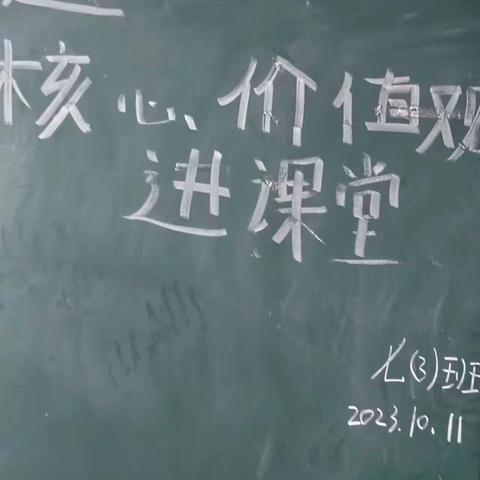 核心、价值观
进课堂
七(3)班
2023.10.11